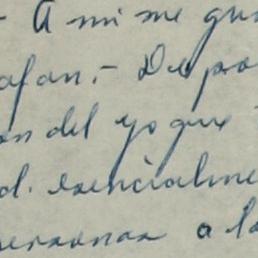 - A mi me gus
afan.- Despo
on del yo que
d. esencialme
personas a la